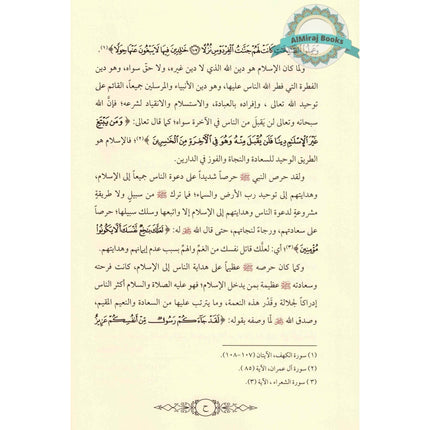 AlMiraj Books
وَعَمِلُوا الصَّالِحَاتِ كَانَتْ لَهُمْ جَنَّاتُ الْفِرْدَوْسِ نُزُلًا ﴿١٠٧﴾ خَالِدِينَ فِيهَا لَا يَبْغُونَ عَنْهَا حِوَلًا﴾(١).
ولما كان الإسلام هو دين الله الذي لا دين غيره، ولا حقّ سواه، وهو دين
الفطرة التي فطر الله الناس عليها، وهو دين الأنبياء والمرسلين جميعاً، القائم على
توحيد الله تعالى ، وإفراده بالعبادة، والاستسلام والانقياد لشرعه؛ فإنَّ الله
سبحانه وتعالى لن يَقبل من الناس في الآخرة سواه؛ كما قال تعالى: ﴿ وَمَن يَبْتَغِ
غَيْرَ الْإِسْلَامِ دِينًا فَلَن يُقْبَلَ مِنْهُ وَهُوَ فِي الْآخِرَةِ مِنَ الْخَاسِرِينَ ﴾(٢)؛ فالإسلام هو
الطريق الوحيد للسعادة والنجاة والفوز في الدارين.
ولقد حرص النبي ﷺ حرصاً شديداً على دعوة الناس جميعاً إلى الإسلام،
وهدايتهم إلى توحيد رب الأرض والسماء؛ فما ترك ﷺ من سبيل ولا طريقةٍ
مشروعة لدعوة الناس وهدايتهم إلى الإسلام إلا واتبعها وسلك سبيلها؛ حرصاً
على سعادتهم، ورجاءً لنجاتهم، حتى قال الله ﷻ له: ﴿ لَعَلَّكَ بَاخِعٌ نَّفْسَكَ أَلَّا يَكُونُوا
مُؤْمِنِينَ ﴾(٣)؛ أي: لعلَّك قاتل نفسك من الغمِّ والهمِّ بسبب عدم إيمانهم وهدايتهم.
وكما كان حرصه ﷺ عظيماً على هداية الناس إلى الإسلام، كانت فرحته
وسعادته ﷺ عظيمة بمن يدخل الإسلام؛ فهو عليه الصلاة والسلام أكثر الناس
إدراكاً لجلالة وقَدْر هذه النعمة، وما يترتب عليها من السعادة والنعيم المقيم،
وصدق الله ﷻ لمّا وصفه بقوله: ﴿ لَقَدْ جَاءَكُمْ رَسُولٌ مِّنْ أَنفُسِكُمْ عَزِيزٌ
(١) سورة الكهف، الآيتان (١٠٧-١٠٨).
(٢) سورة آل عمران، الآية (٨٥ ).
(٣ ) سورة الشعراء ، الآية (٣).
ح